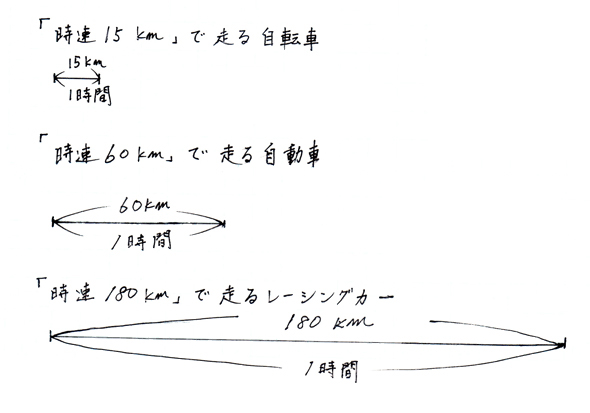 「時速15km」で走る自転車
15km
1時間
「時速60km」で走る自動車
60km
1時間
「時速180km」で走るレーシングカー
180km
1時間